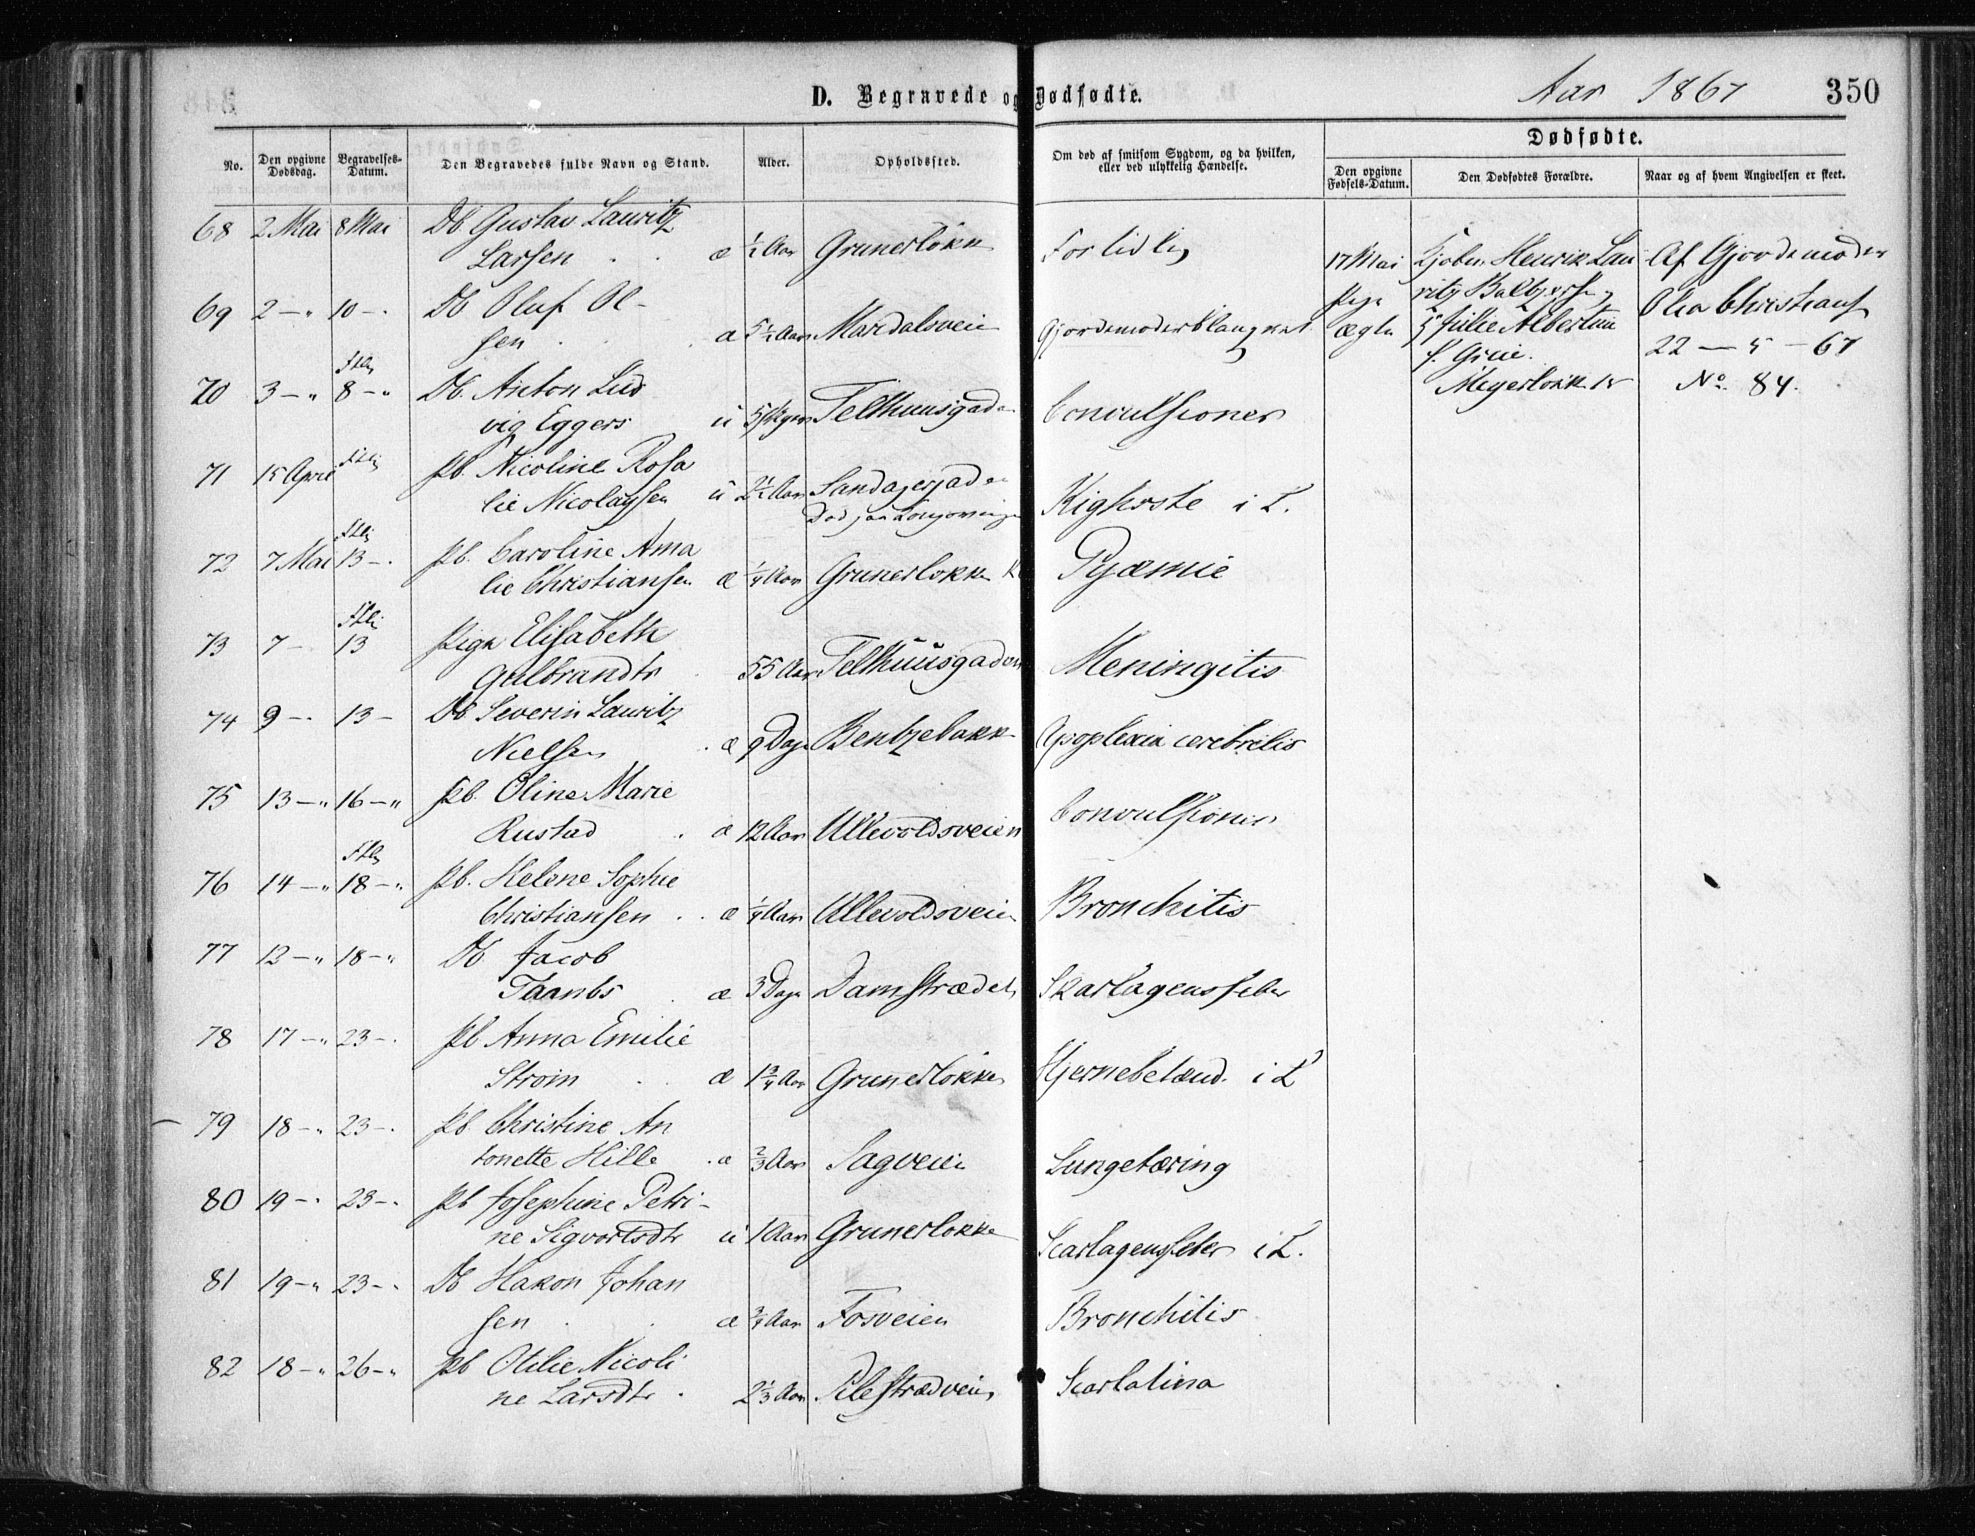 D. Begravede og Dødfødte.
Aar 1867
350
No.
Den opgivne Dødsdag.
Begravelses-Datum.
Den Begravedes fulde Navn og Stand.
Alder.
Opholdssted.
Om død af smitsom Sygdom, og da hvilken, eller ved ulykkelig Hændelse.
Dødfødte.
Den opgivne Fødsels-Datum.
Den Dødfødtes Forældre.
Naar og af hvem Angivelsen er skeet.
68 2 Mai 8 Mai Db. Gustav Lauritz
Larsen æ ½ Aar Grunerløkk
For tidlig
17 Mai
Pige
ægte
Henrik Lau
ritz
Julie Albertine
f.
Meyerløkk
Af Gjordemoder
Olia Christians
22 - 5 - 67
No. 84.
69 2 -" 10 - Db Oluf Ol-
sen æ 5½ Aar Mardalsveie
70 3 -" 8 -" Db. Anton Lud
vig Eggers u Telthuusgaden
Convulsioner
71 15 April Pb. Nicoline Rosa
lie Nicolaysen u Aar
Kighoste i L.
72 7 Mai 13 -. Pb. Caroline Ama
lie Christiansen æ ¼ Aar Grunerløkken
Pyæmie
73 7 - 13 Pige Elisabeth
Gulbrandtr 55 Aar Telthuusgaden
Meningitis
74 9 -. 13 - Db Severin Lauritz
Nielsen æ 9 Dage Bentzebakk
Apoplexia cerebralis
75 13 -" 16 -" Pb. Oline Marie
Rustad æ 12 Aar Ullevoldsveien
Convulsioner
76 14 -" 18 -" Pb. Helene Sophie
Christiansen æ ¼ Aar Ullevoldsveien
Bronchitis
77 12 -" 18 -" Db Jacob
æ 3 Dage Damstrædet
Skarlagensfeber
78 17 -" 23 -. Pb Anna Emilie
Strøm æ 1¾ Aar Grunerløkke
Hjernebetænd. i L
79 18 -" 23 -. Pb Christine An
tonette Hille æ ⅔ Aar Sagveien
Lungetæring
80 19 -" 23 -. Pb Josephine Petri-
ne Sigvortsdtr u 1 Aar Grunerløkke
Scarlagensfeber i L.
81 19 -" 23 -" Db Hakon Johan
sen æ ¾ Aar Fosveien
Bronchitis
82 18 -" 26 -" Pb Otilie Nicoli
ne Larsdtr 2⅓ Aar Pilestrædveien
Scarlatina